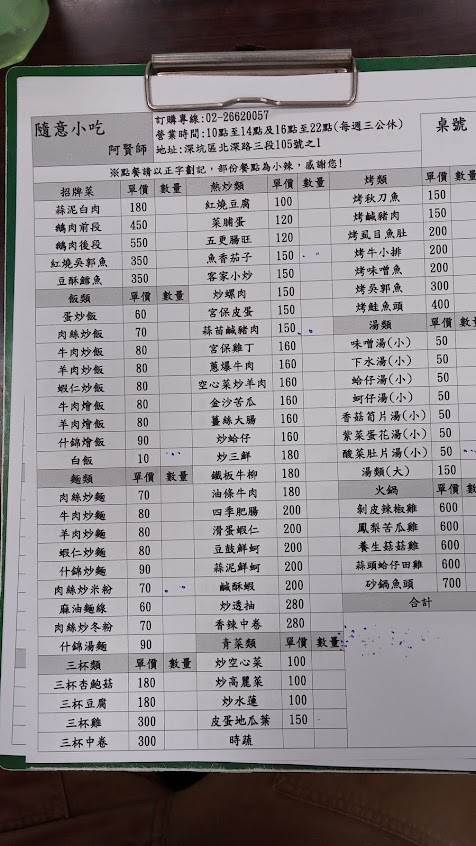 隨意小吃
阿賢師
訂購專線:02-26620057
營業時間:10點至14點及16點至22點(每週三公休)
地址:深坑區北深路三段105號之1
桌號
※點餐請以正字劃記,部份餐點為小辣,感謝您!
招牌菜 單價 數量
蒜泥白肉 180
鵝肉前段 450
鵝肉後段 550
紅燒吳郭魚 350
豆酥鱈魚 350
飯類 單價 數量
蛋炒飯 60
肉絲炒飯 70
牛肉炒飯 80
羊肉炒飯 80
蝦仁炒飯 80
牛肉燴飯 80
羊肉燴飯 80
什錦燴飯 90
白飯 10
麵類 單價 數量
肉絲炒麵 70
牛肉炒麵 80
羊肉炒麵 80
蝦仁炒麵 80
什錦炒麵 90
肉絲炒米粉 70
麻油麵線 60
肉絲炒冬粉 70
什錦湯麵 90
三杯類 單價 數量
三杯杏鮑菇 180
三杯豆腐 180
三杯雞 300
三杯中卷 300
熱炒類 單價 數量
紅燒豆腐 100
菜脯蛋 120
五更腸旺 120
魚香茄子 150
客家小炒 150
炒螺肉 150
宮保皮蛋 150
蒜苗鹹豬肉 150
宮保雞丁 160
蔥爆牛肉 160
空心菜炒羊肉 160
金沙苦瓜 160
薑絲大腸 160
炒蛤仔 160
炒三鮮 180
鐵板牛柳 180
油條牛肉 180
四季肥腸 200
滑蛋蝦仁 200
豆鼓鮮蚵 200
蒜泥鮮蚵 200
鹹酥蝦 200
炒透抽 280
香辣中卷 280
青菜類 單價 數量
炒空心菜 100
炒高麗菜 100
炒水蓮 100
皮蛋地瓜葉 150
時蔬
烤類 單價 數
烤秋刀魚 150
烤鹹豬肉 150
烤虱目魚肚 200
烤牛小排 200
烤味噌魚 200
烤吳郭魚 300
烤鮭魚頭 400
湯類 單價 數
味噌湯(小) 50
下水湯(小) 50
蛤仔湯(小) 50
蚵仔湯(小) 50
香菇筍片湯(小) 50
紫菜蛋花湯(小) 50
酸菜肚片湯(小) 50
湯類(大) 150
火鍋 單價 數
剝皮辣椒雞 600
鳳梨苦瓜雞 600
養生菇菇雞 600
蒜頭蛤仔田雞 600
砂鍋魚頭 700
合計